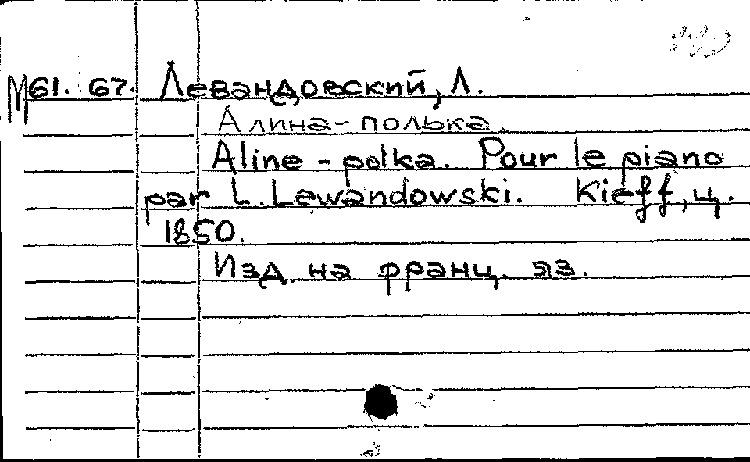 М61.67. Левандовский, Л.
Алина-полька.
Aline - polka. Pour le piano
par L. Lewandowski. Kieff, ц.
1850.
Изд. на франц. яз.